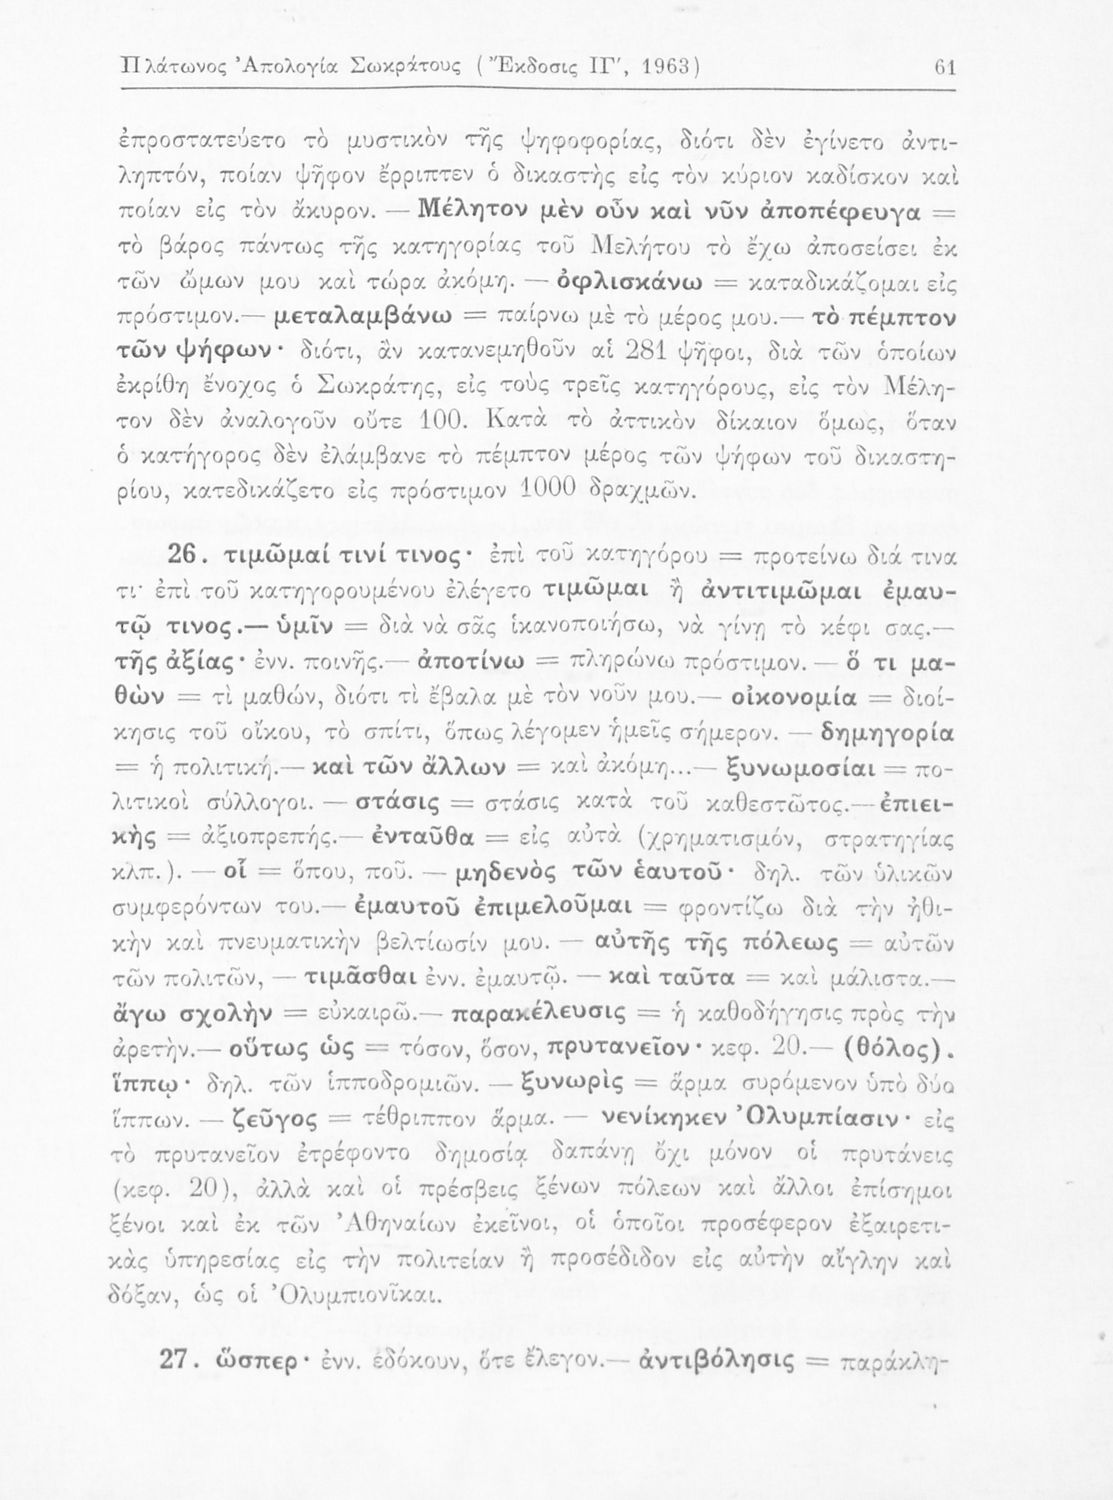 Πλάτωνος Ἀπολογία Σωκράτους (Ἔκδοσις ΙΓ′, 1963) 61
ἐπροστατεύετο τὸ μυστικὸν τῆς ψηφοφορίας, διότι δὲν ἐγίνετο ἀντι-
ληπτόν, ποίαν ψῆφον ἔρριπτεν ὁ δικαστὴς εἰς τὸν κύριον καδίσκον καὶ
ποίαν εἰς τὸν ἄκυρον. — Μέλητον μὲν οὖν καὶ νῦν ἀποπέφευγα =
τὸ βάρος πάντως τῆς κατηγορίας τοῦ Μελήτου τὸ ἔχω ἀποσείσει ἐκ
τῶν ὤμων μου καὶ τώρα ἀκόμη. — ὀφλισκάνω = καταδικάζομαι εἰς
πρόστιμον.— μεταλαμβάνω = παίρνω μὲ τὸ μέρος μου.— τὸ πέμπτον
τῶν ψήφων· διότι, ἂν κατανεμηθοῦν αἱ 281 ψῆφοι, διὰ τῶν ὁποίων
ἐκρίθη ἔνοχος ὁ Σωκράτης, εἰς τοὺς τρεῖς κατηγόρους, εἰς τὸν Μέλη-
τον δὲν ἀναλογοῦν οὔτε 100. Κατὰ τὸ ἀττικὸν δίκαιον ὅμως, ὅταν
ὁ κατήγορος δὲν ἐλάμβανε τὸ πέμπτον μέρος τῶν ψήφων τοῦ δικαστη-
ρίου, κατεδικάζετο εἰς πρόστιμον 1000 δραχμῶν.
26. τιμῶμαί τινί τινος· ἐπὶ τοῦ κατηγόρου = προτείνω διά τινα
τι· ἐπὶ τοῦ κατηγορουμένου ἐλέγετο τιμῶμαι ἢ ἀντιτιμῶμαι ἐμαυ-
τῷ τινος.— ὑμῖν = διὰ νὰ σᾶς ἱκανοποιήσω, νὰ γίνῃ τὸ κέφι σας.—
τῆς ἀξίας· ἐνν. ποινῆς.— ἀποτίνω = πληρώνω πρόστιμον. — ὅ τι μα-
θὼν = τὶ μαθών, διότι τὶ ἔβαλα μὲ τὸν νοῦν μου.— οἰκονομία = διοί-
κησις τοῦ οἴκου, τὸ σπίτι, ὅπως λέγομεν ἡμεῖς σήμερον. — δημηγορία
= ἡ πολιτική.— καὶ τῶν ἄλλων = καὶ ἀκόμη...— ξυνωμοσίαι = πο-
λιτικοὶ σύλλογοι. — στάσις = στάσις κατὰ τοῦ καθεστῶτος.— ἐπιει-
κὴς = ἀξιοπρεπής.— ἐνταῦθα = εἰς αὐτὰ (χρηματισμόν, στρατηγίας
κλπ.). — οἷ = ὅπου, ποῦ. — μηδενὸς τῶν ἑαυτοῦ· δηλ. τῶν ὑλικῶν
συμφερόντων του.— ἐμαυτοῦ ἐπιμελοῦμαι = φροντίζω διὰ τὴν ἠθι-
κὴν καὶ πνευματικὴν βελτίωσίν μου. — αὐτῆς τῆς πόλεως = αὐτῶν
τῶν πολιτῶν, — τιμᾶσθαι ἐνν. ἐμαυτῷ. — καὶ ταῦτα = καὶ μάλιστα.—
ἄγω σχολὴν = εὐκαιρῶ.— παρακέλευσις = ἡ καθοδήγησις πρὸς τὴν
ἀρετὴν.— οὕτως ὡς = τόσον, ὅσον, πρυτανεῖον· κεφ. 20.— (θόλος).
ἵππῳ· δηλ. τῶν ἱπποδρομιῶν. — ξυνωρὶς = ἅρμα συρόμενον ὑπὸ δύο
ἵππων. — ζεῦγος = τέθριππον ἅρμα. — νενίκηκεν Ὀλυμπίασιν· εἰς
τὸ πρυτανεῖον ἐτρέφοντο δημοσίᾳ δαπάνῃ ὄχι μόνον οἱ πρυτάνεις
(κεφ. 20), ἀλλὰ καὶ οἱ πρέσβεις ξένων πόλεων καὶ ἄλλοι ἐπίσημοι
ξένοι καὶ ἐκ τῶν Ἀθηναίων ἐκεῖνοι, οἱ ὁποῖοι προσέφερον ἐξαιρετι-
κὰς ὑπηρεσίας εἰς τὴν πολιτείαν ἢ προσέδιδον εἰς αὐτὴν αἴγλην καὶ
δόξαν, ὡς οἱ Ὀλυμπιονῖκαι.
27. ὥσπερ· ἐνν. ἐδόκουν, ὅτε ἔλεγον.— ἀντιβόλησις = παράκλη-